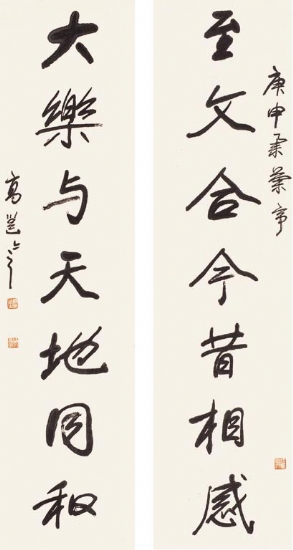 至文合今昔相感
庚申
大樂与天地同和
高邕